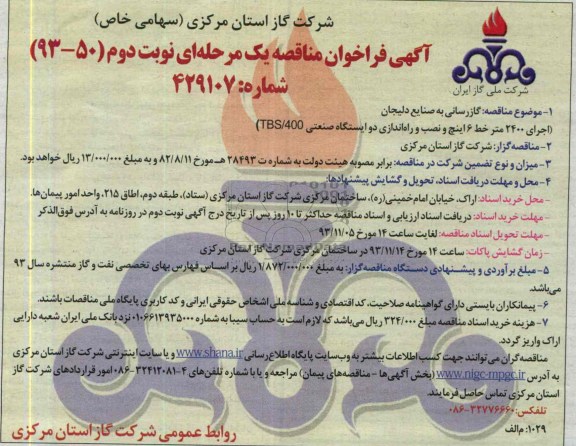 شرکت گاز استان مرکزی (سهامی خاص)
آگهی فراخوان مناقصه یک مرحله‌ای نوبت دوم (۵۰-۹۳)
شماره: ۴۲۹۱۰۷
شرکت ملی گاز ایران
۱- موضوع مناقصه: گازرسانی به صنایع دلیجان
(اجرای ۲۴۰۰ متر خط ۶ اینچ و نصب و راه‌اندازی دو ایستگاه صنعتی TBS/400)
۲- مناقصه‌گزار: شرکت گاز استان مرکزی
۳- میزان و نوع تضمین شرکت در مناقصه: برابر مصوبه هیئت دولت به شماره ت ۲۸۴۹۳ هـ مورخ ۸۲/۸/۱۱ و به مبلغ ۱۳/۰۰۰/۰۰۰ ریال خواهد بود.
۴- محل و مهلت دریافت اسناد، تحویل و گشایش پیشنهادها:
- محل خرید اسناد: اراک، خیابان امام خمینی(ره)، ساختمان مرکزی شرکت گاز استان مرکزی (ستاد)، طبقه دوم، اطاق ۲۱۵، واحد امور پیمان‌ها.
- مهلت خرید اسناد: دریافت اسناد ارزیابی و اسناد مناقصه حداکثر تا ۱۰ روز پس از تاریخ درج آگهی نوبت دوم در روزنامه به آدرس فوق‌الذکر
- مهلت تحویل اسناد مناقصه: لغایت ساعت ۱۴ مورخ ۹۳/۱۱/۰۵
- زمان گشایش پاکات: ساعت ۱۴ مورخ ۹۳/۱۱/۱۴ در ساختمان مرکزی شرکت گاز استان مرکزی
۵- مبلغ برآوردی و پیشنهادی دستگاه مناقصه‌گزار: به مبلغ ۱/۸۷۲/۰۰۰/۰۰۰ ریال بر اساس فهارس بهای تخصصی نفت و گاز منتشره سال ۹۳
می‌باشد.
۶- پیمانکاران بایستی دارای گواهینامه صلاحیت، کد اقتصادی و شناسه ملی اشخاص حقوقی ایرانی و کد کاربری پایگاه ملی مناقصات باشند.
۷- هزینه خرید اسناد مناقصه مبلغ ۳۲۴/۰۰۰ ریال می‌باشد که لازم است به حساب سیبا به شماره ۰۱۰۶۶۱۳۹۳۵۰۰۰ نزد بانک ملی ایران شعبه دارایی
اراک واریز گردد.
مناقصه‌گران می‌توانند جهت کسب اطلاعات بیشتر به وب‌سایت پایگاه اطلاع‌رسانی www.shana.ir و یا سایت اینترنتی شرکت گاز استان مرکزی
به آدرس www.nigc-mpgc.ir (بخش آگهی‌ها - مناقصه‌های پیمان) مراجعه و یا با شماره تلفن‌های ۴-۳۲۴۱۲۰۸۱-۰۸۶ امور قراردادهای شرکت گاز
استان مرکزی تماس حاصل فرمایند.
تلفکس: ۳۲۷۷۶۶۶۰-۰۸۶
۱۰۲۹: م‌الف
روابط عمومی شرکت گاز استان مرکزی